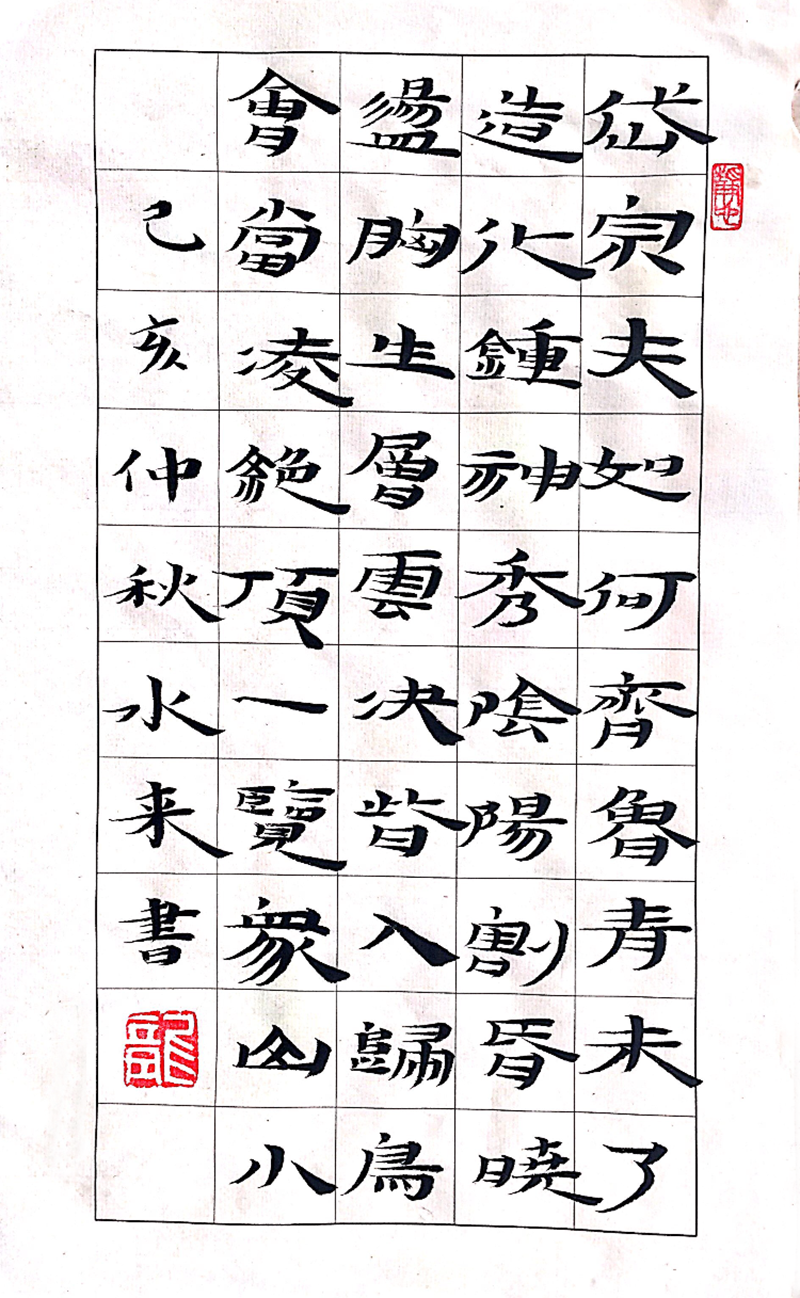 岱宗夫如何齊魯青未了
造化鍾神秀陰陽割昏曉
盪胸生層雲决眥入歸鳥
會當凌絕頂一覽衆山小
己亥仲秋水来書
龍